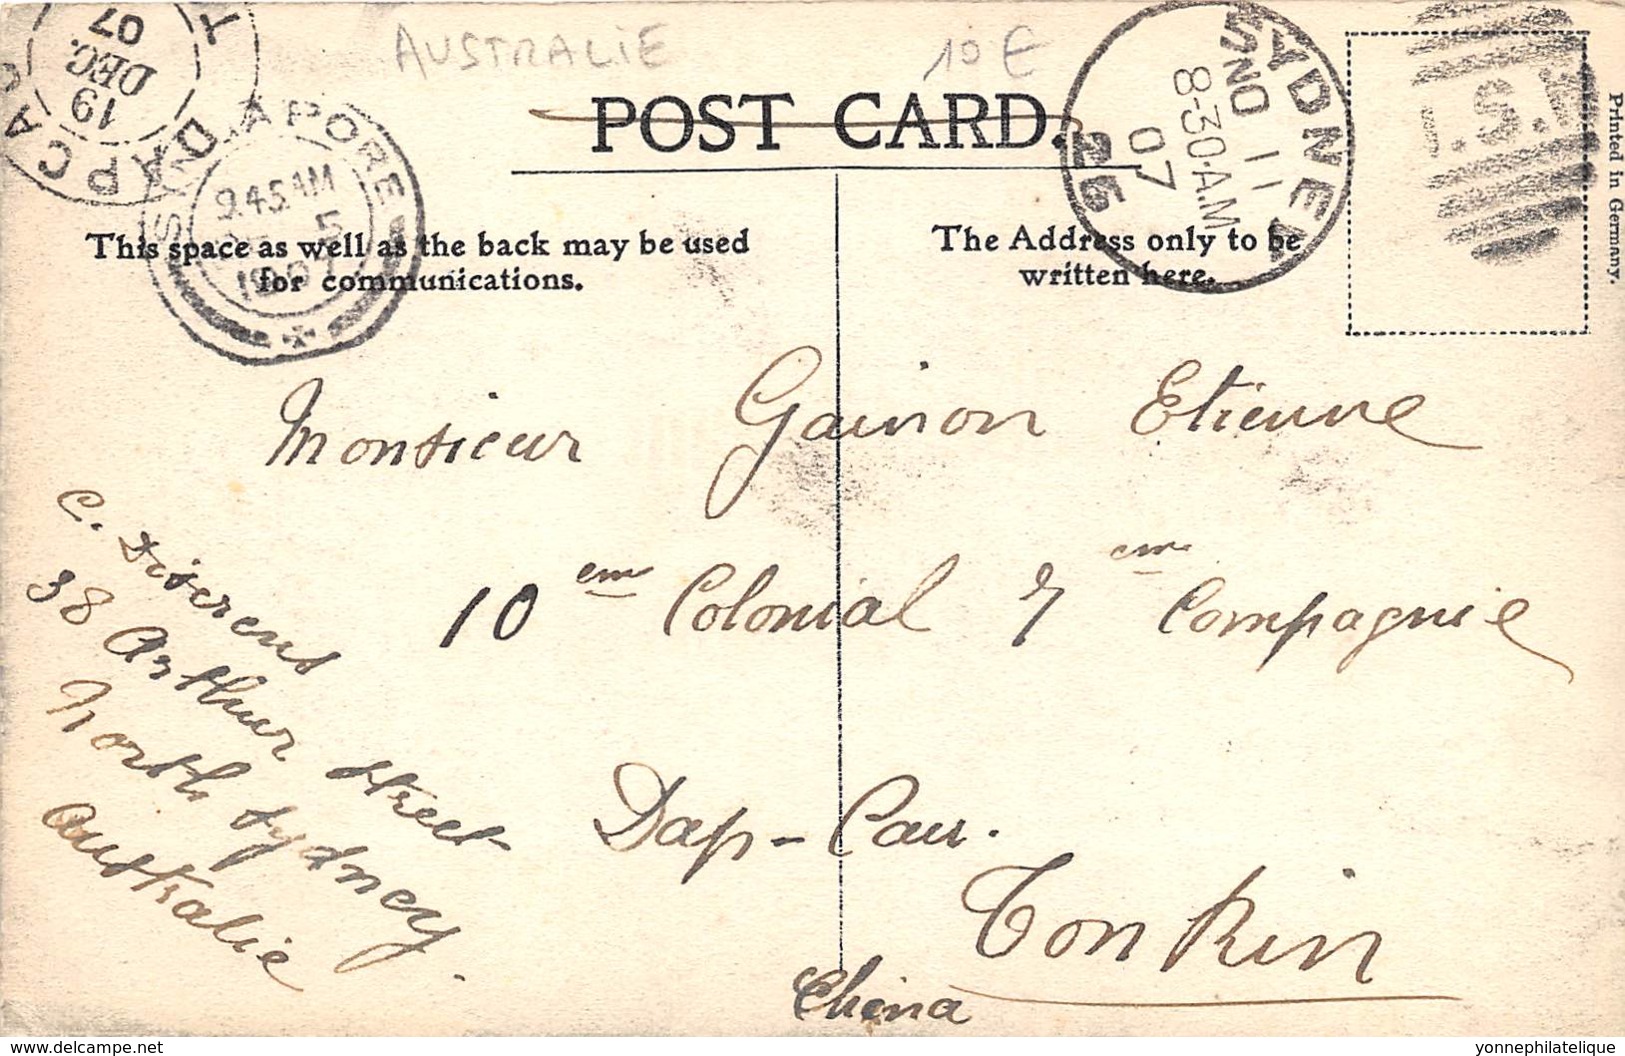 AUSTRALIE
10 €
POST CARD.
This space as well as the back may be used
for communications.
The Address only to be
written here.
Printed in Germany.
SYDNEY
NO 11
8-30 A.M
07
26
SINGAPORE
9.45 AM
5
1907
DAP CAU
19
DEC.
07
Monsieur Gainon Etienne
10 eme Colonial 7 eme Compagnie
Dap-Cau.
Tonkin
China
C. Diserens
38 Arthur Street
North Sydney.
Australie
www.delcampe.net
yonnephilatelique